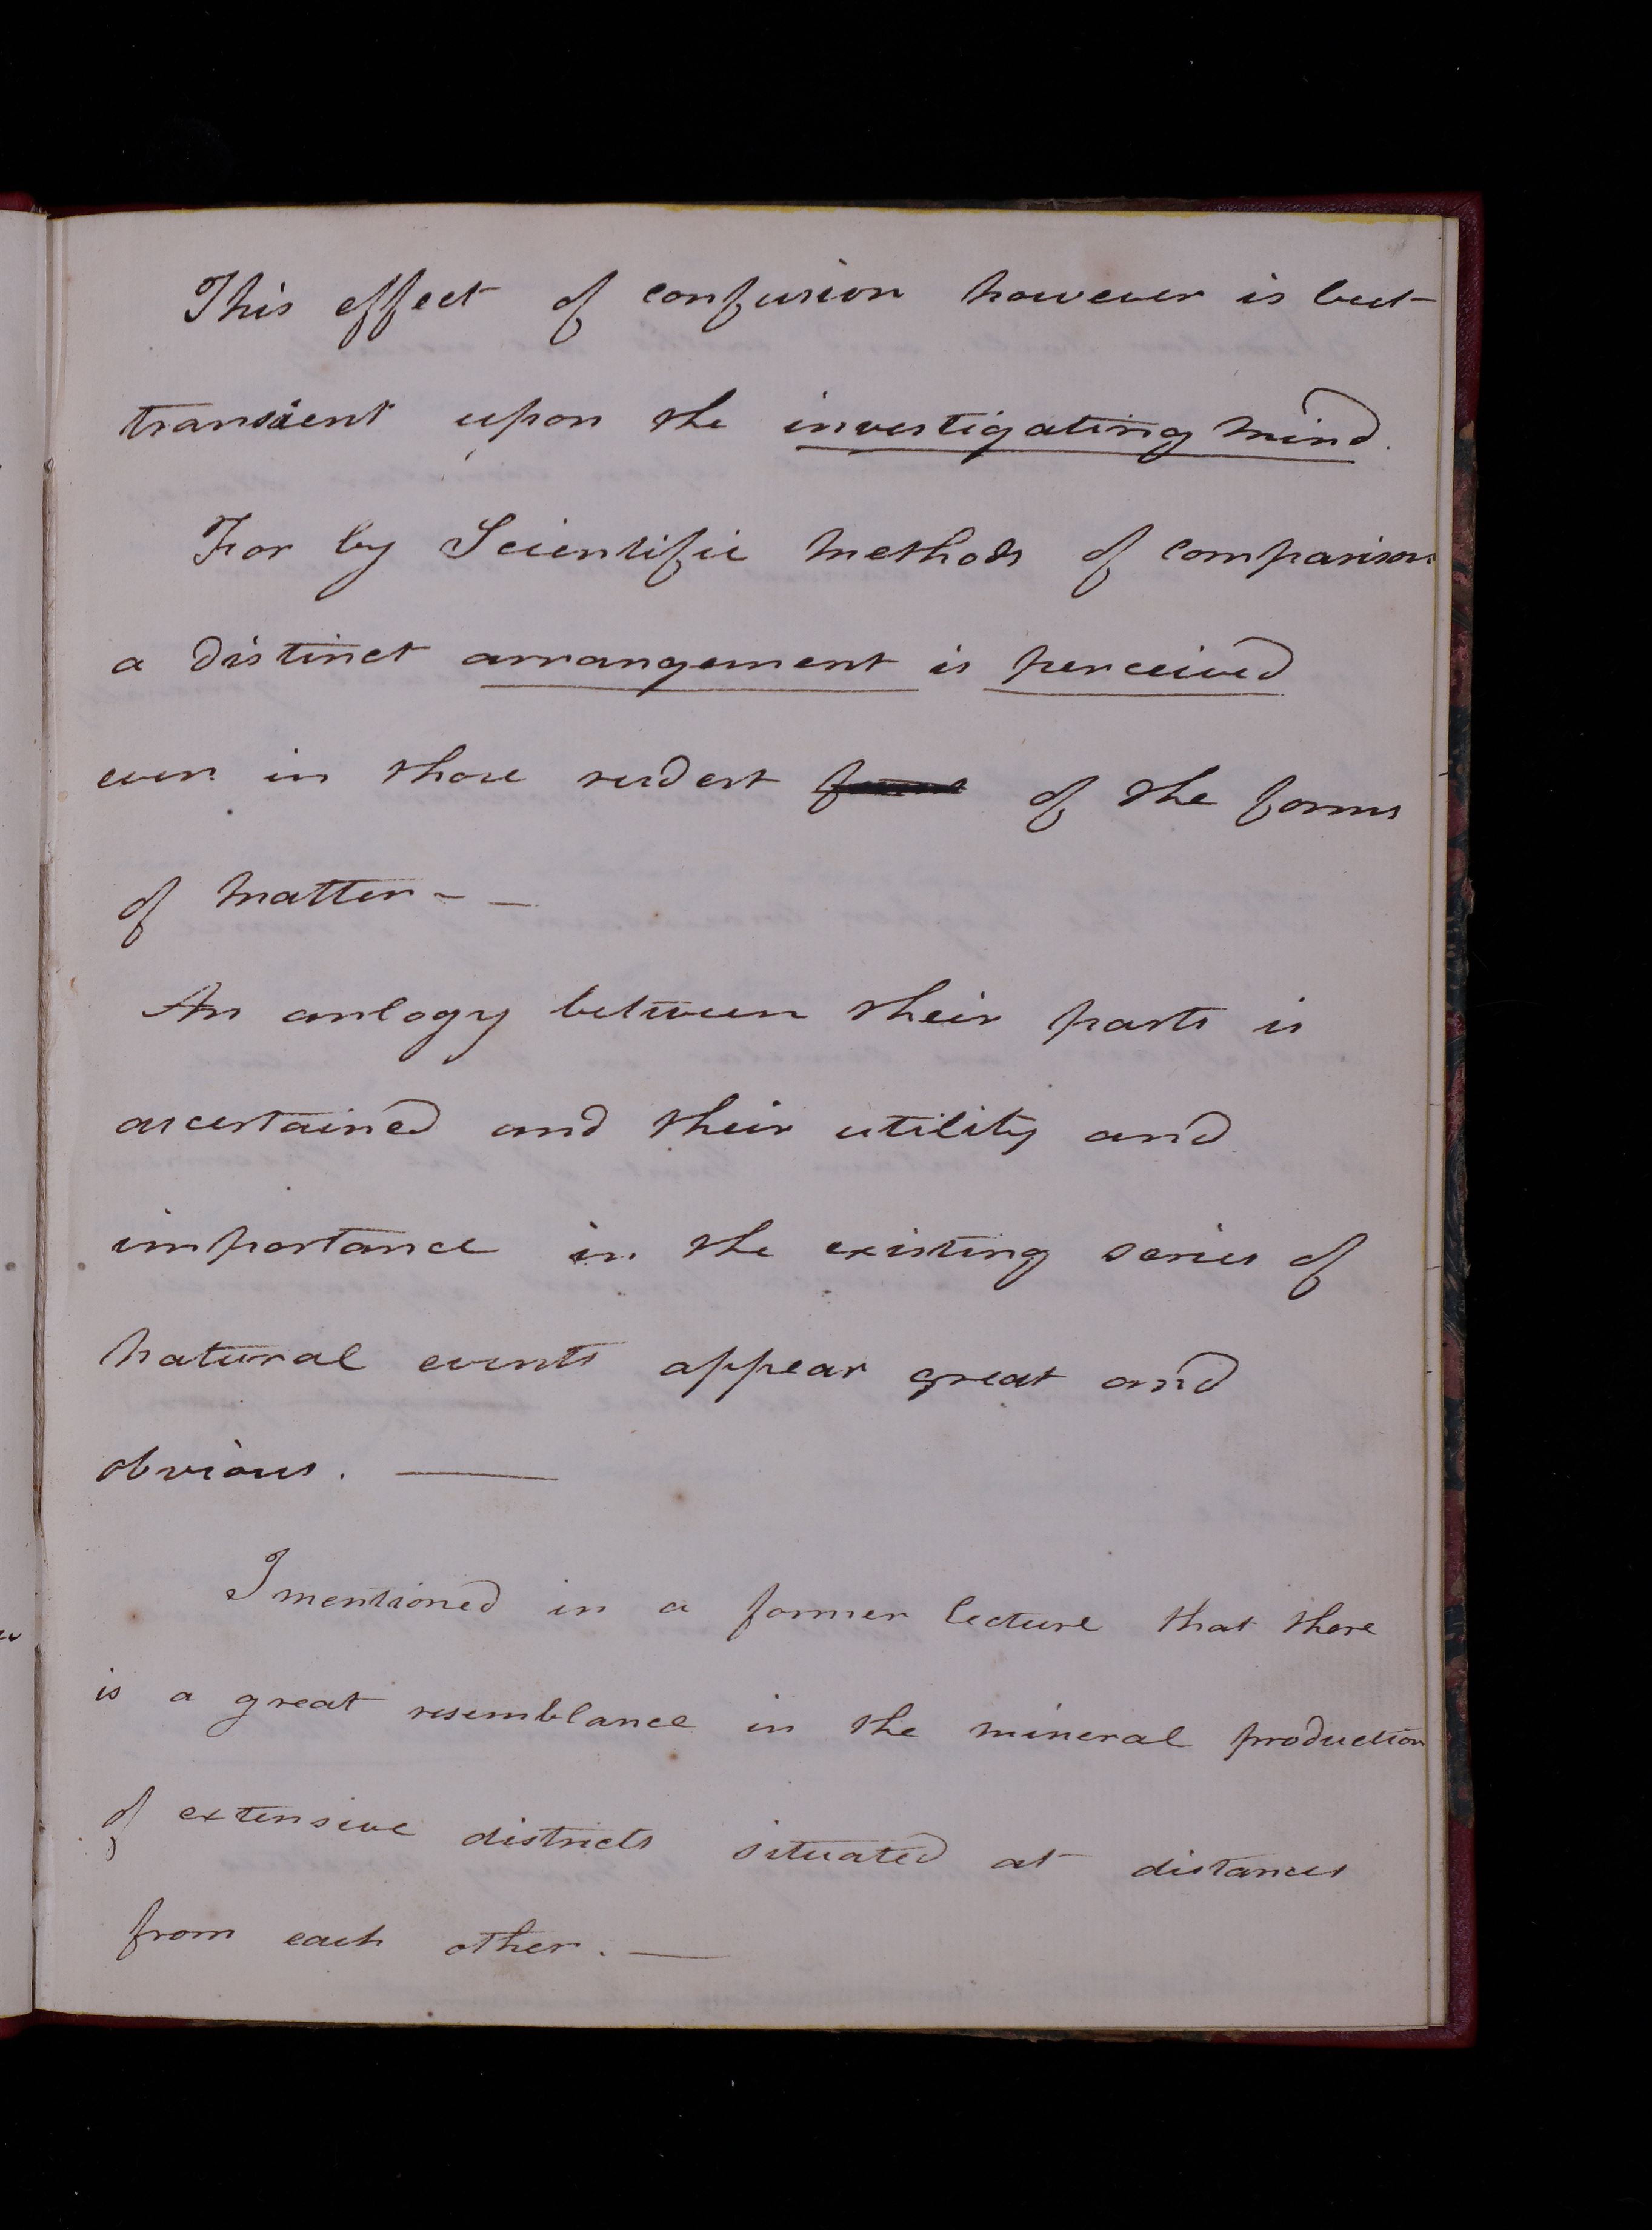 This effect of confusion however is but
transient upon the investigating mind.
For by Scientific methods of comparison
a distinct arrangement is perceived
even in those rudest of the forms
of matter - —
An anlogy between their parts is
ascertained and their utility and
importance in the existing series of
natural events appear great and
obvious. —
I mentioned in a former lecture that there
is a great resemblance in the mineral production
of extensive districts situated at distances
from each other. —